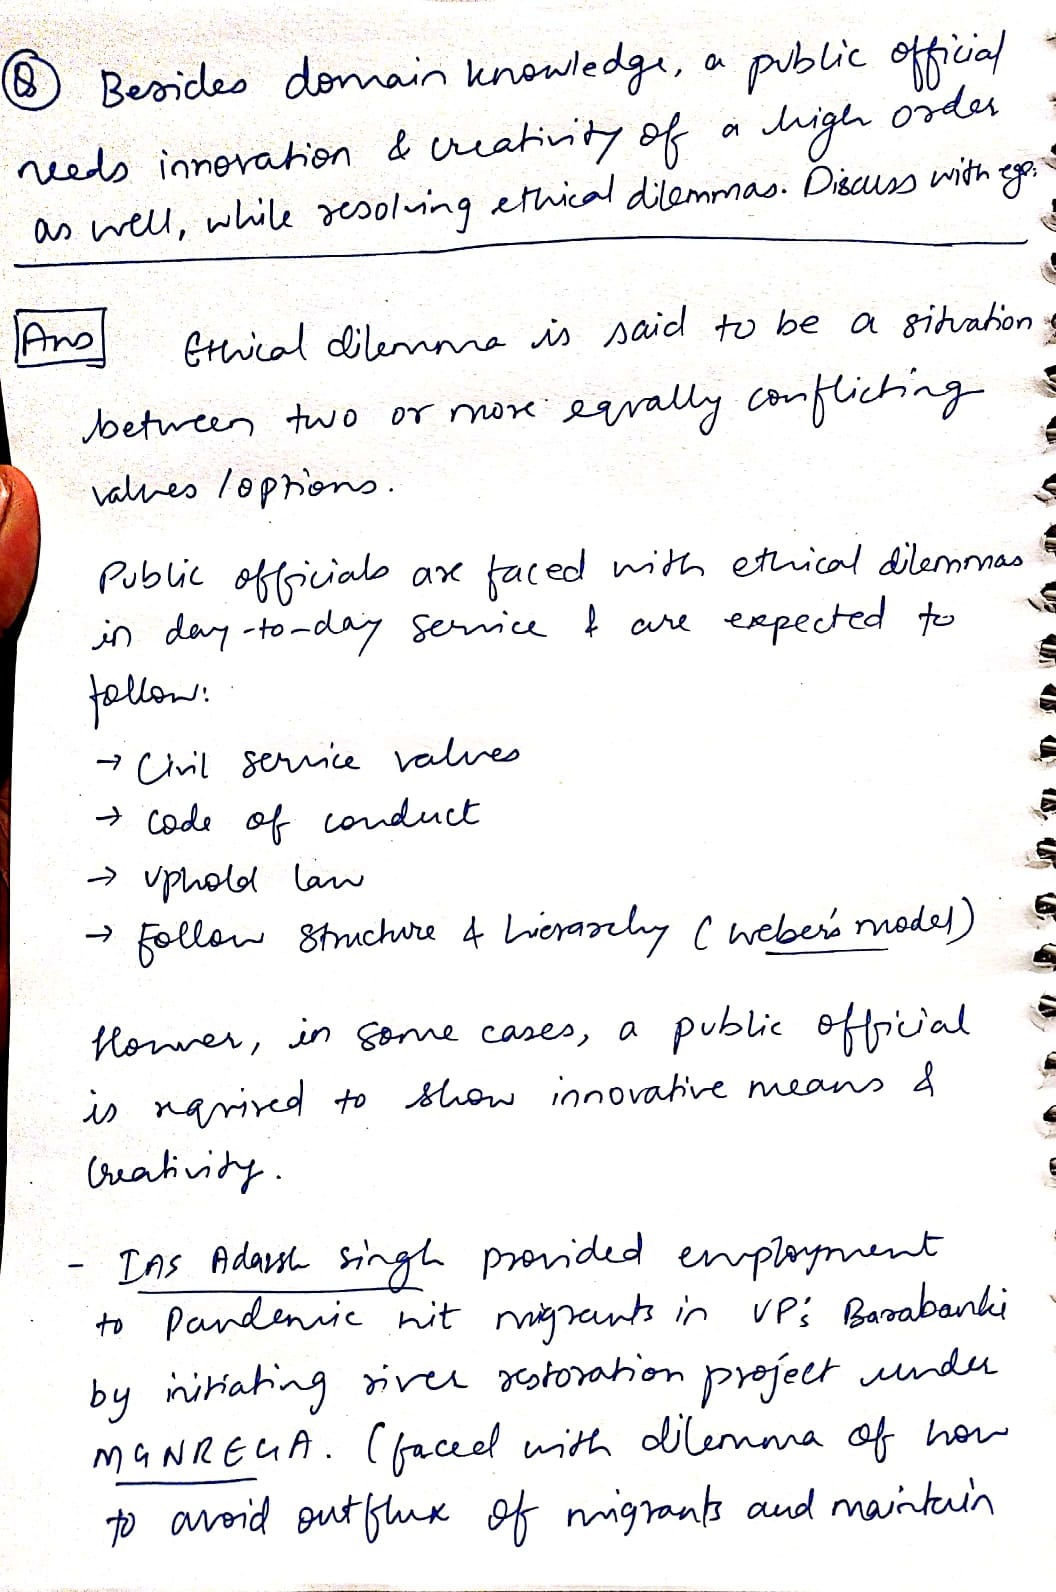 Q Besides domain knowledge, a public official
needs innovation & creativity of a high order
as well, while resolving ethical dilemmas. Discuss with egs.
Ans Ethical dilemma is said to be a situation
between two or more equally conflicting
values / options.
Public officials are faced with ethical dilemmas
in day-to-day service & are expected to
follow:
→ Civil service values
→ code of conduct
→ uphold law
→ Follow structure & hierarchy (Weber's model)
However, in some cases, a public official
is required to show innovative means &
creativity.
- IAS Adarsh Singh provided employment
to Pandemic hit migrants in UP's Barabanki
by initiating river restoration project under
MGNREGA. (faced with dilemma of how
to avoid outflux of migrants and maintain